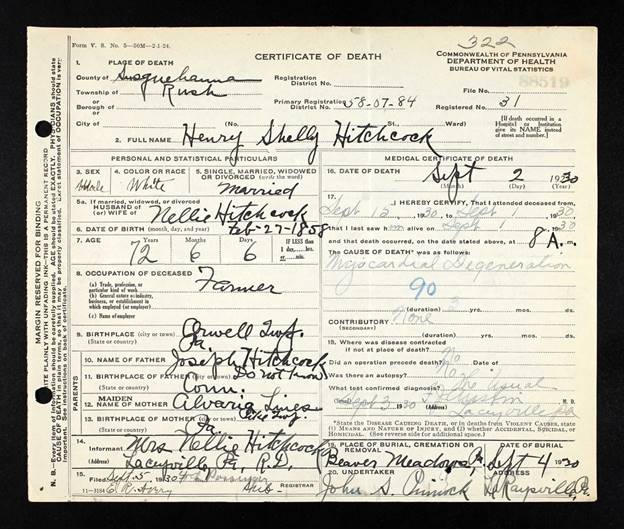 Form V. S. No. 5—50M—2-1-24.
322
CERTIFICATE OF DEATH
COMMONWEALTH OF PENNSYLVANIA
DEPARTMENT OF HEALTH
BUREAU OF VITAL STATISTICS
88519
1. PLACE OF DEATH
County of Susquehanna
Township of Rush
Borough of
City of
Registration District No.
Primary Registration District No. 58-07-84
File No.
Registered No. 31
No. St. Ward)
[If death occurred in a Hospital or Institution give its NAME instead of street and number.]
2. FULL NAME Henry Shelly Hitchcock
PERSONAL AND STATISTICAL PARTICULARS
3. SEX Male
4. COLOR OR RACE White
5. SINGLE, MARRIED, WIDOWED OR DIVORCED (write the word) Married
5a. If married, widowed or divorced
HUSBAND of (or) WIFE of Nellie Hitchcock
6. DATE OF BIRTH (month, day, and year) Feb-27-1858
7. AGE Years 72 Months 6 Days 6 IF LESS than
8. OCCUPATION OF DECEASED Farmer
(a) Trade, profession, or particular kind of work
(b) General nature of industry, business, or establishment in which employed (or employer)
(c) Name of employer
9. BIRTHPLACE (city or town) Orwell Twp.
(State or country) Pa.
PARENTS
10. NAME OF FATHER Joseph Hitchcock
11. BIRTHPLACE OF FATHER (city or town) Do not know
(State or country) Conn.
12. MAIDEN NAME OF MOTHER Alvaria Lines
13. BIRTHPLACE OF MOTHER (city or town)
(State or country) Pa.
14. Informant Mrs. Nellie Hitchcock
(Address) Laceyville, Pa, R.D.
15. Filed Sept-5 1930
11-3184
REGISTRAR
MEDICAL CERTIFICATE OF DEATH
16. DATE OF DEATH Sept 2 1930
(Month) (Day) (Year)
17. I HEREBY CERTIFY, That I attended deceased from
1930 to Sept 1 1930
that I last saw him alive on Sept 1 1930
and that death occurred, on the date stated above, at 8 A. m.
The CAUSE OF DEATH* was as follows:
Myocardial Degeneration
90
(duration) 3 yrs. mos. ds.
CONTRIBUTORY None
(SECONDARY)
(duration) yrs. mos. ds.
18. Where was disease contracted if not at place of death?
Did an operation precede death? No
Was there an autopsy? No
What test confirmed diagnosis? The usual
(Signed) M. D.
Sept 3 1930 (Address) Laceyville Pa
*State the DISEASE CAUSING DEATH, or in deaths from VIOLENT CAUSES, state (1) MEANS AND NATURE OF INJURY, and (2) whether ACCIDENTAL, SUICIDAL, or HOMICIDAL. (See reverse side for additional space).
19. PLACE OF BURIAL, CREMATION, OR REMOVAL Beaver Meadows Pa
DATE OF BURIAL Sept 4 1930
20. UNDERTAKER John S. Pinnock
ADDRESS LeRaysville, Pa.
MARGIN RESERVED FOR BINDING
WRITE PLAINLY WITH UNFADING INK—THIS IS A PERMANENT RECORD